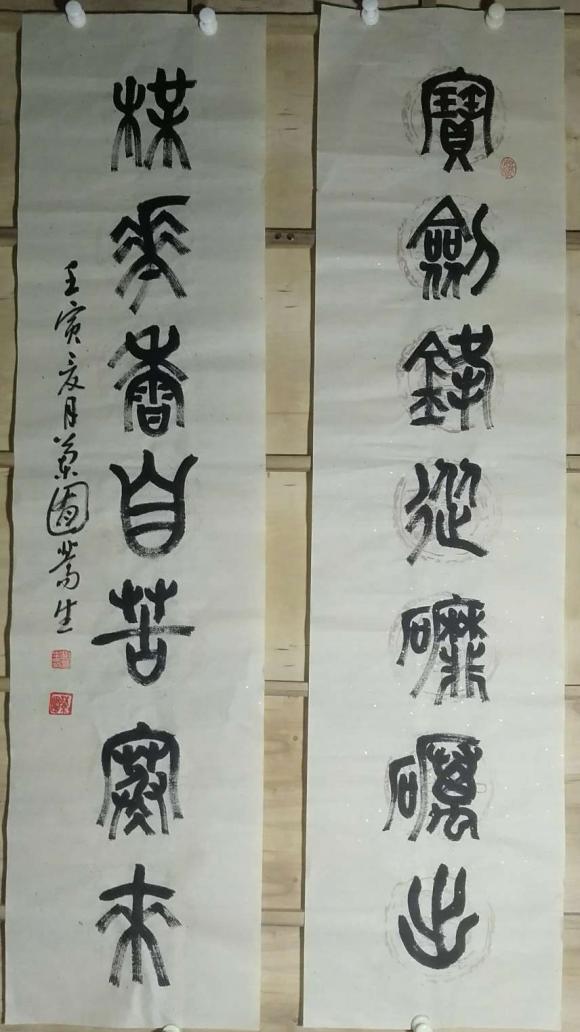 寶劍鋒從磨礪出
楳花香自苦寒來
壬寅夏月園生